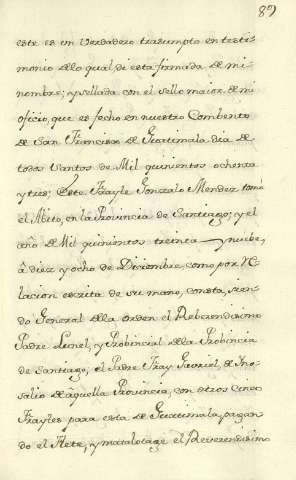 89)
este es un verdadero trasumpto en testi-
monio de lo qual, di esta firmada de mi
nombre; y sellada con el sello maior, de mi
oficio, que es fecho en nuestro Combento
de San Francisco de Guatimala dia de
todos Santos de Mil quinientos ochenta
y tres; Este Frayle Gonzalo Mendez tomó
el Abito, en la Provincia de Santiago; y el
año de Mil quinientos treinta y nuebe,
á diez y ocho de Diziembre, como por re
lacion escrita de su mano, consta, sien-
do General de la orden el Reberendisimo
Padre Lunel, y Probincial de la Probincia
de Santiago, el Padre Fray Gavriel, de
de aquella Provincia, con otros Cinco
Frayles para esta de Guatimala, pagan
do el Flete, y matalotage el Reverendisimo